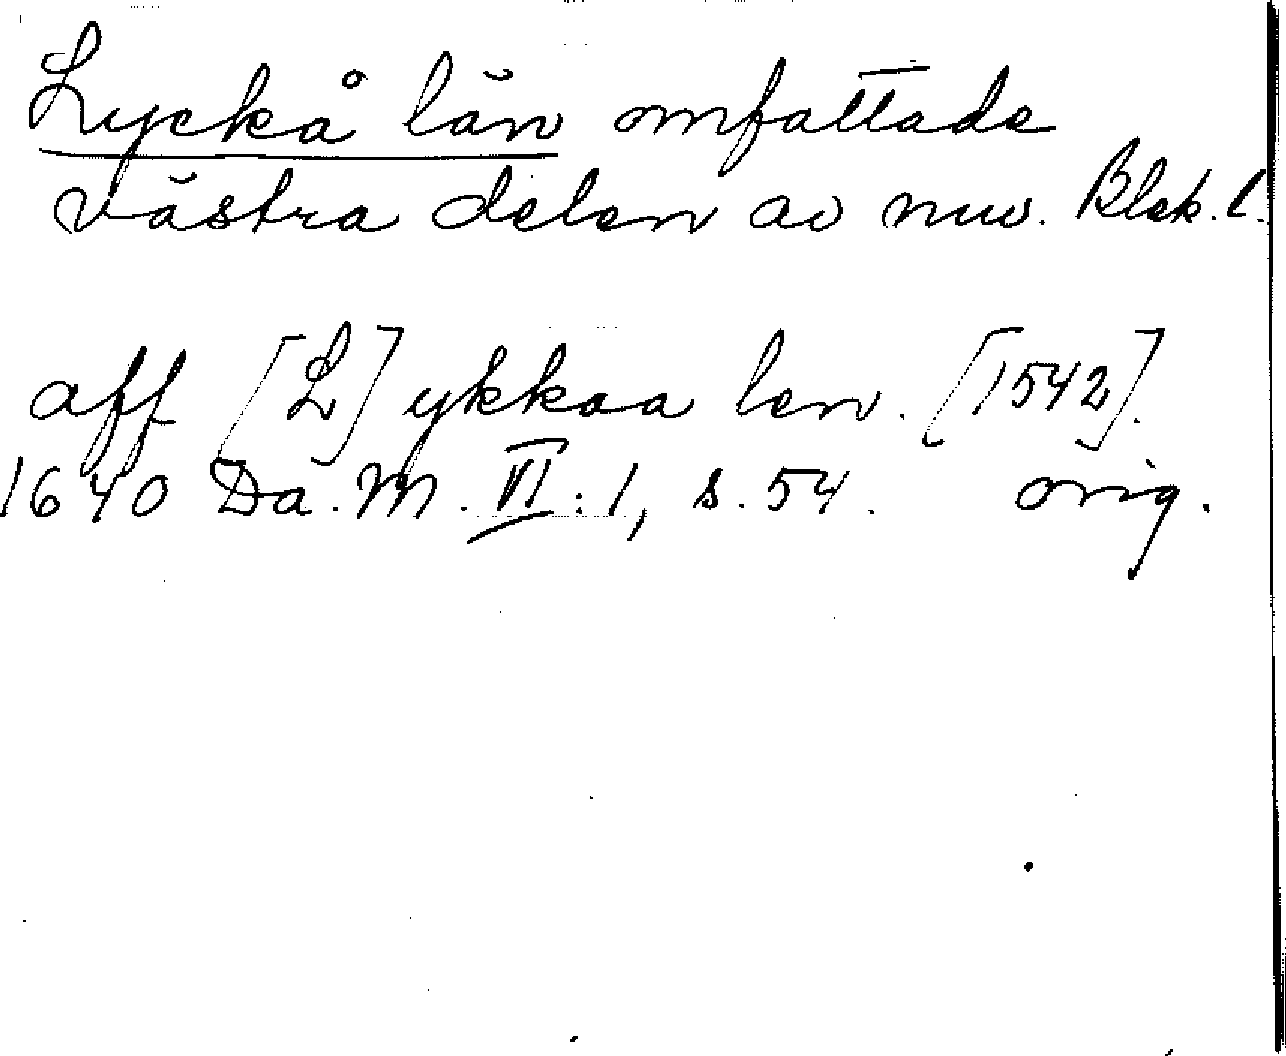 Lyckå län omfattade
västra delen av nuv. Blek. l.
aff [L]ykkaa len. [1542].
1640 Da. M. VI:1, s. 54. orig.